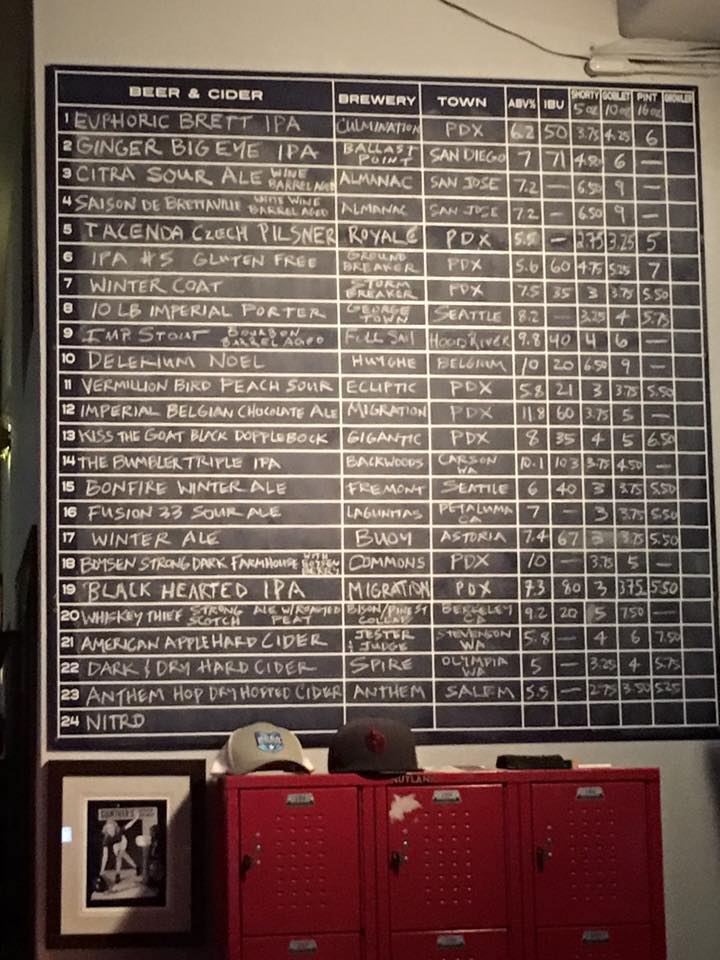 BEER & CIDER BREWERY TOWN ABV% IBU SHORTY 5 oz GOBLET 10 oz PINT 16 oz GROWLER
1 EUPHORIC BRETT IPA CULMINATION PDX 6.2 50 3.75 4.25 6
2 GINGER BIG EYE IPA BALLAST POINT SAN DIEGO 7 71 4.50 6 —
3 CITRA SOUR ALE WINE BARREL AGED ALMANAC SAN JOSE 7.2 — 6.50 9 —
4 SAISON DE BRETTAVILLE WHITE WINE BARREL AGED ALMANAC SAN JOSE 7.2 — 6.50 9 —
5 TACENDA CZECH PILSNER ROYALE PDX 5.5 — 2.75 3.25 5
6 IPA #5 GLUTEN FREE GROUND BREAKER PDX 5.6 60 4.75 5.25 7
7 WINTER COAT STORM BREAKER PDX 7.5 35 3 3.75 5.50
8 10 LB IMPERIAL PORTER GEORGE TOWN SEATTLE 8.2 — 3.25 4 5.75
9 IMP STOUT BOURBON BARREL AGED FULL SAIL HOOD RIVER 9.8 40 4 6 —
10 DELERIUM NOEL HUYGHE BELGIUM 10 20 6.50 9 —
11 VERMILLION BIRD PEACH SOUR ECLIPTIC PDX 5.8 21 3 3.75 5.50
12 IMPERIAL BELGIAN CHOCOLATE ALE MIGRATION PDX 11.8 60 3.75 5 —
13 KISS THE GOAT BLACK DOPPLEBOCK GIGANTIC PDX 8 35 4 5 6.50
14 THE BUMBLER TRIPLE IPA BACKWOODS CARSON WA 10.1 103 3.75 4.50 —
15 BONFIRE WINTER ALE FREMONT SEATTLE 6 40 3 3.75 5.50
16 FUSION 33 SOUR ALE LAGUNITAS PETALUMA CA 7 — 3 3.75 5.50
17 WINTER ALE BUOY ASTORIA 7.4 67 3 3.75 5.50
18 BOYSEN STRONG DARK FARMHOUSE WITH BOYSEN BERRY COMMONS PDX 10 — 3.75 5 —
19 BLACK HEARTED IPA MIGRATION PDX 7.3 80 3 3.75 5.50
20 WHISKEY THIEF STRONG SCOTCH ALE W/ROASTED PEAT BISON/ COLLAB BERKELEY CA 9.2 20 5 7.50 —
21 AMERICAN APPLE HARD CIDER JESTER & JUDGE STEVENSON WA 5.8 — 4 6 7.50
22 DARK & DRY HARD CIDER SPIRE OLYMPIA WA 5 — 3.25 4 5.75
23 ANTHEM HOP DRY HOPPED CIDER ANTHEM SALEM 5.5 — 2.75 3.50 5.25
24 NITRO